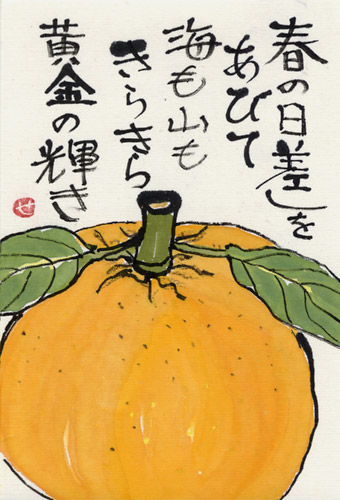 春の日差しを
あびて
海も山も
きらきら
黄金の輝き
せ